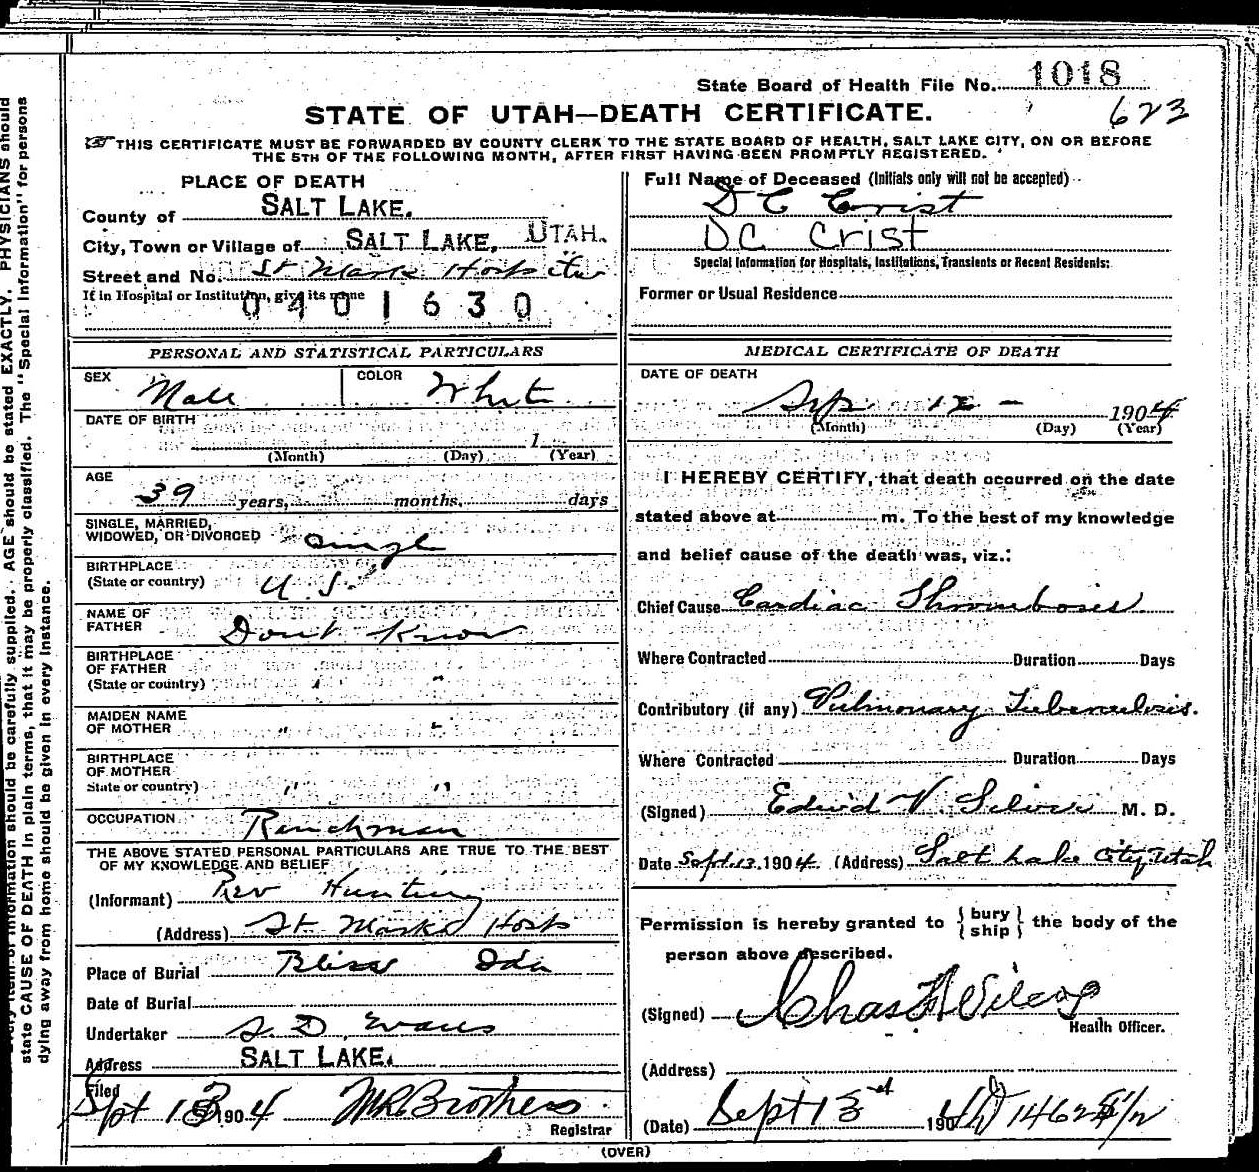 State Board of Health File No. 1018
623
STATE OF UTAH—DEATH CERTIFICATE.
THIS CERTIFICATE MUST BE FORWARDED BY COUNTY CLERK TO THE STATE BOARD OF HEALTH, SALT LAKE CITY, ON OR BEFORE
THE 5TH OF THE FOLLOWING MONTH, AFTER FIRST HAVING BEEN PROMPTLY REGISTERED.
PLACE OF DEATH
County of SALT LAKE.
City, Town or Village of SALT LAKE, UTAH.
Street and No. St Marks Hospital
If in Hospital or Institution, give its name
0401630
Full Name of Deceased (Initials only will not be accepted)
D C Crist
DC Crist
Special Information for Hospitals, Institutions, Transients or Recent Residents:
Former or Usual Residence
PERSONAL AND STATISTICAL PARTICULARS
SEX Male COLOR White
DATE OF BIRTH
1
(Month) (Day) (Year)
AGE
39 years, months, days
SINGLE, MARRIED,
WIDOWED, OR DIVORCED Single
BIRTHPLACE
(State or country) U.S.
NAME OF
FATHER Dont Know
BIRTHPLACE
OF FATHER
(State or country) " "
MAIDEN NAME
OF MOTHER " "
BIRTHPLACE
OF MOTHER
State or country) " "
OCCUPATION Ranchman
THE ABOVE STATED PERSONAL PARTICULARS ARE TRUE TO THE BEST
OF MY KNOWLEDGE AND BELIEF
(Informant) Rev Hunting
(Address) St Marks Hosp
Place of Burial Bliss Ida
Date of Burial
Undertaker S. D Evans
Address SALT LAKE.
Filed
Spt 13 1904 MR Brothers
Registrar
MEDICAL CERTIFICATE OF DEATH
DATE OF DEATH
Sep 12 - 1904
(Month) (Day) (Year)
I HEREBY CERTIFY, that death occurred on the date
stated above at m. To the best of my knowledge
and belief cause of the death was, viz.:
Chief Cause Cardiac Thrombosis
Where Contracted Duration Days
Contributory (if any) Pulmonary Tuberculosis.
Where Contracted Duration Days
(Signed) V Silver M. D.
Date Sept. 13. 1904. (Address) Salt Lake City, Utah
Permission is hereby granted to {bury ship} the body of the
person above described.
(Signed) Chas F Wilcox
Health Officer.
(Address)
(Date) Sept 13rd 190
(OVER)
item of information should be carefully supplied. AGE should be stated EXACTLY. PHYSICIANS should
state CAUSE OF DEATH in plain terms, that it may be properly classified. The "Special Information" for persons
dying away from home should be given in every instance.